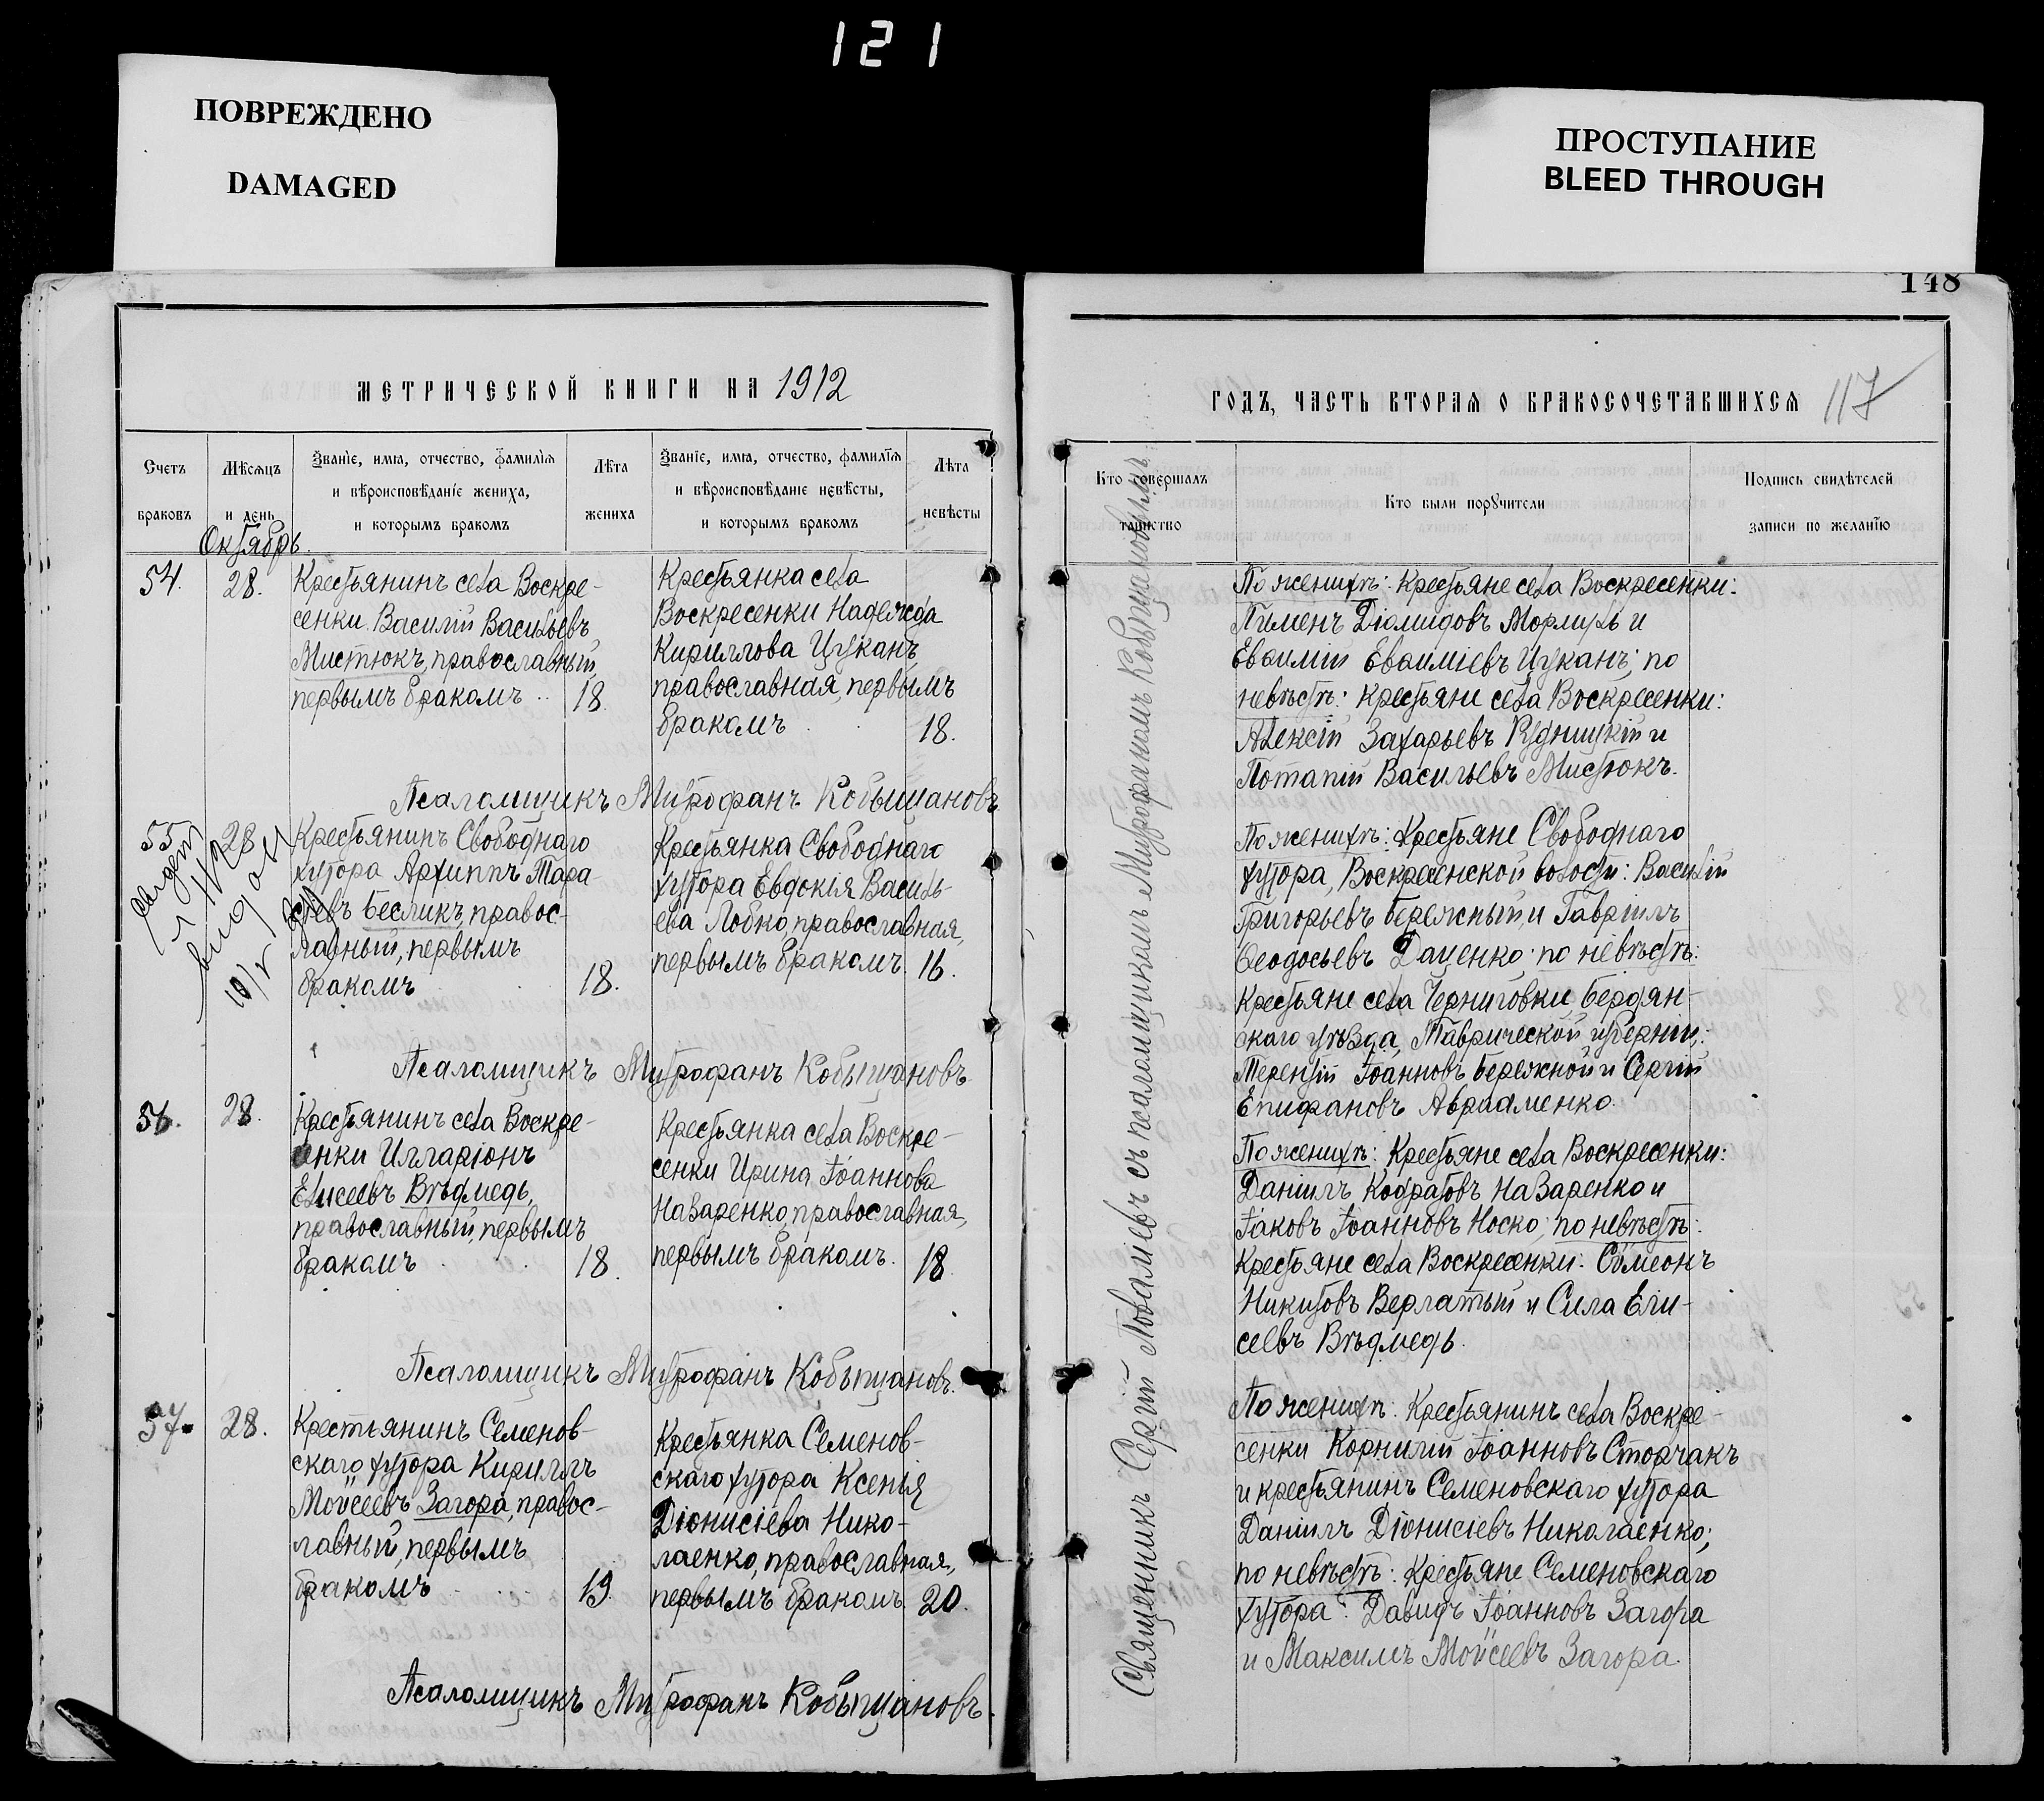 121
ПОВРЕЖДЕНО
DAMAGED
ПРОСТУПАНИЕ
BLEED THROUGH
148
МЕТРИЧЕСКОЙ КНИГИ НА 1912
Счетъ браковъ
Мѣсяцъ и день
Званіе, имя, отчество, фамилія
и вѣроисповѣданіе жениха,
и которымъ бракомъ
Лѣта жениха
Званіе, имя, отчество, фамилія
и вѣроисповѣданіе невѣсты,
и которымъ бракомъ
Лѣта невѣсты
Октябрь.
54.
28.
Крестьянинъ села Воскре-
сенки Василій Васильевъ
Мистюкъ, православный,
первымъ бракомъ
18.
Крестьянка села
Воскресенки Надежда
Кириллова Цуканъ,
православная, первымъ
бракомъ
18.
Псаломщикъ Митрофанъ Кобыщановъ
55
28
Крестьянинъ Свободнаго
хутора Архиппъ Тара-
сьевъ Бесликъ, правос-
лавный, первымъ
бракомъ
18.
Крестьянка Свободнаго
хутора Евдокія Василь-
ева Лобко, православная,
первымъ бракомъ.
16.
Псаломщикъ Митрофанъ Кобыщановъ
56.
28.
Крестьянинъ села Воскре-
сенки Илларіонъ
Елисеевъ Вѣдмедь,
православный, первымъ
бракомъ
18.
Крестьянка села Воскре-
сенки Ирина Іоаннова
Назаренко, православная,
первымъ бракомъ.
18
Псаломщикъ Митрофанъ Кобыщановъ.
57.
28.
Крестьянинъ Семенов-
скаго хутора Кириллъ
Мойсеевъ Загора, правос-
лавный, первымъ
бракомъ
19.
Крестьянка Семенов-
скаго хутора Ксенія
Діонисіева Нико-
лаенко, православная,
первымъ бракомъ.
20.
Псаломщикъ Митрофанъ Кобыщановъ.
ГОДЪ, ЧАСТЬ ВТОРАЯ О БРАКОСОЧЕТАВШИХСЯ
117
Кто совершалъ таинство
Кто были поручители
Подпись свидѣтелей
записи по желанію
Священникъ Сергій съ псаломщикомъ Митрофаномъ Кобыщановымъ
По женихѣ: Крестьяне села Воскресенки:
Пименъ Діомидовъ и
Евѳимій Евѳиміевъ Цуканъ; по
невѣстѣ: крестьяне села Воскресенки:
Алексій Захарьевъ Рудницкій и
Потапій Васильевъ Мистюкъ.
По женихѣ: Крестьяне Свободнаго
хутора, Воскресенской волости: Василій
Григорьевъ Бережный, и Гавріилъ
Ѳеодосьевъ Даценко; по невѣстѣ:
Крестьяне села Черниговки, Бердян-
скаго уѣзда, Таврической губерніи,:
Терентій Іоанновъ Бережной и Сергій
Епифановъ Авраменко.
По женихѣ: Крестьяне села Воскресенки:
Даніилъ Кодратовъ Назаренко и
Іаковъ Іоанновъ Носко; по невѣстѣ:
Крестьяне села Воскресенки: Сѵмеонъ
Никитовъ Верлатый и Сила Ели-
сеевъ Вѣдмедь.
По женихѣ: Крестьянинъ села Воскре-
сенки Корнилій Іоанновъ Сторчакъ
и крестьянинъ Семеновскаго хутора
Даніилъ Діонисіевъ Николаенко;
по невѣстѣ: Крестьяне Семеновскаго
хутора: Давидъ Іоанновъ Загора
и Максимъ Мойсеевъ Загора.